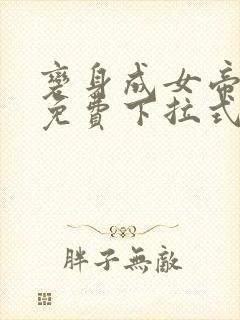 変身成女帝
免費下拉式
胖子無敵